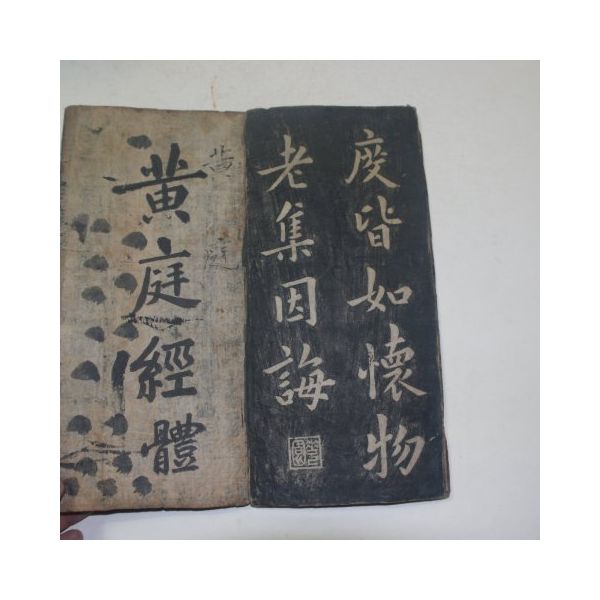 度皆如懷物
老集因誨
黃
庭
黃庭經體